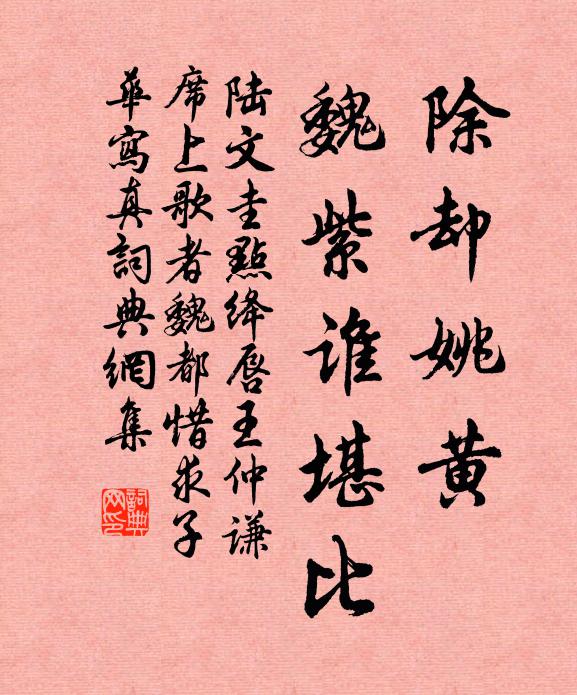 除却姚黄
魏紫谁堪比
陆文圭點绛唇王仲谦
席上歌者魏都惜求子
華寫真詞典網集
詞典网印